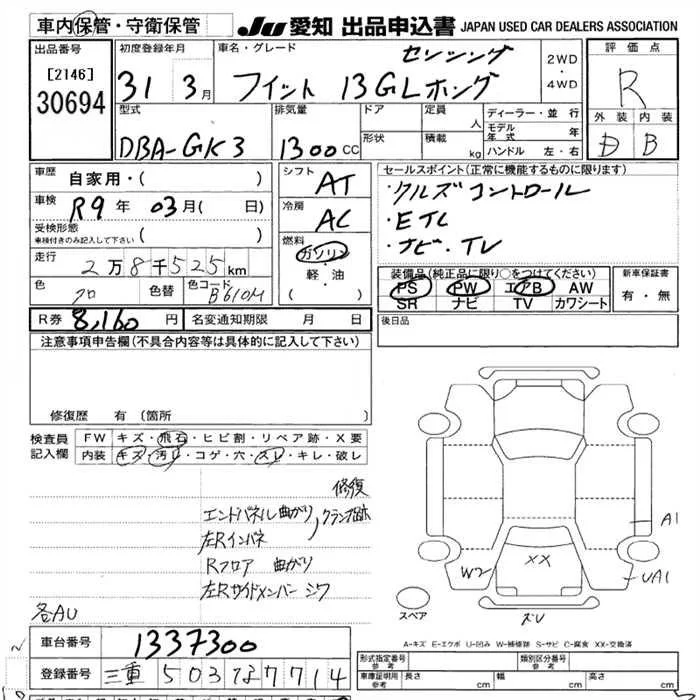 車内保管・守衛保管
JU 愛知 出品申込書 JAPAN USED CAR DEALERS ASSOCIATION
出品番号
[2146]
30694
初度登録年月
31 3月
車名・グレード
センシング
フィット 13GLホンダ
2WD
・
4WD
評価点
R
外装 内装
D B
型式
DBA-GK3
排気量
1300CC
ドア
形状
定員 人
積載 kg
ディーラー・並行
モデル年式 年
ハンドル 左・右
車歴
自家用・( )
車検
R9年 03月( 日)
受検形態
車検付きのみ記入して下さい ( )
走行
2万8千525km
色
クロ
色替
色コード
B610M
シフト
AT
冷房
AC
燃料
ガソリン
・
軽・油
( )
セールスポイント(正常に機能するものに限ります)
・クルズコントロール
・ETC
・ナビ・TV
装備品(純正品に限り○をつけてください)
PS PW エアB AW
SR ナビ TV カワシート
新車保証書
有・無
R券 8,160円
名変通知期限 月 日
後日品
注意事項申告欄(不具合内容等は具体的に記入して下さい)
修復歴 有(箇所 )
検査員
記入欄
FW キズ・飛石・ヒビ割・リペア跡・X要
内装 キズ・汚レ・コゲ・穴・スレ・キレ・破レ
修復
エンドパネル曲がり
クランプ跡
左Rインパネ
Rフロア 曲がり
左Rサイドメンバー シワ
各AU
A1
XX
W2
UA1
ズレ
スペア
A-キズ E-エクボ U-凹み W-補修跡 S-サビ C-腐食 XX-交換済
車台番号
1337300
登録番号
三重 503 な 7714
形式指定番号
参考
類別区分番号
参考
車庫証明用
参考
長さ cm
幅 cm
高さ cm